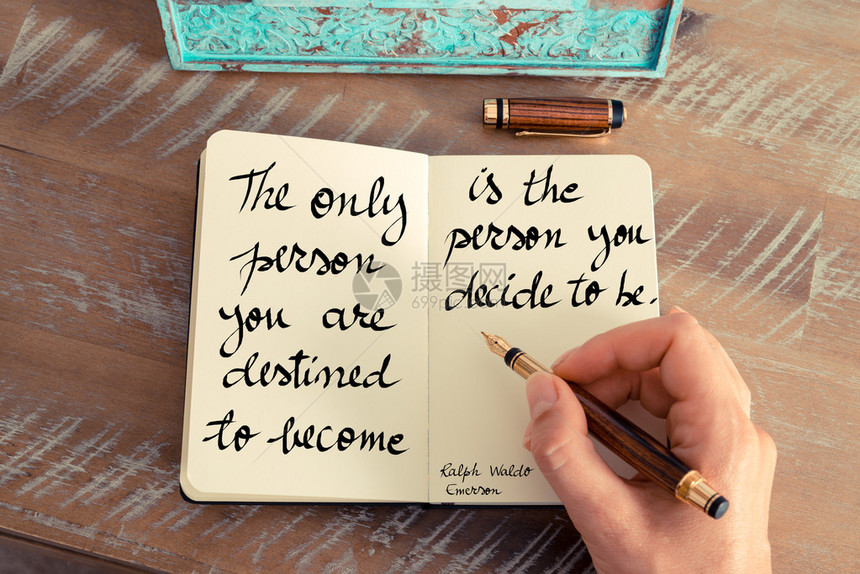 The only
person
you are
destined
to become
is the
person you
decide to be.
Ralph Waldo
Emerson
摄图网